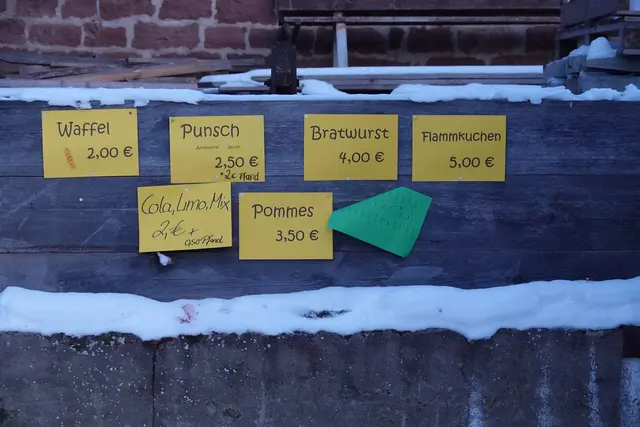 Waffel
2,00 €
Punsch
2,50 €
+2€ Pfand
Bratwurst
4,00 €
Flammkuchen
5,00 €
Cola, Limo, Mix
2,-€ +
0,50 Pfand
Pommes
3,50 €